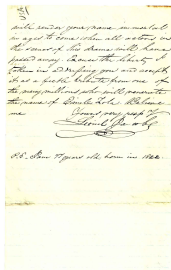 will render your name immortal
in ages to come when all actors in
the scenes of this drama will have
passed away. Excuse the liberty I
taken in addressing you and accept
it as a feeble tribute from one of
the many millions, who will venerate
the name of Emile Zola. Believe
me
Yours very resp'y
P.S. I am 75 years old born in 1822